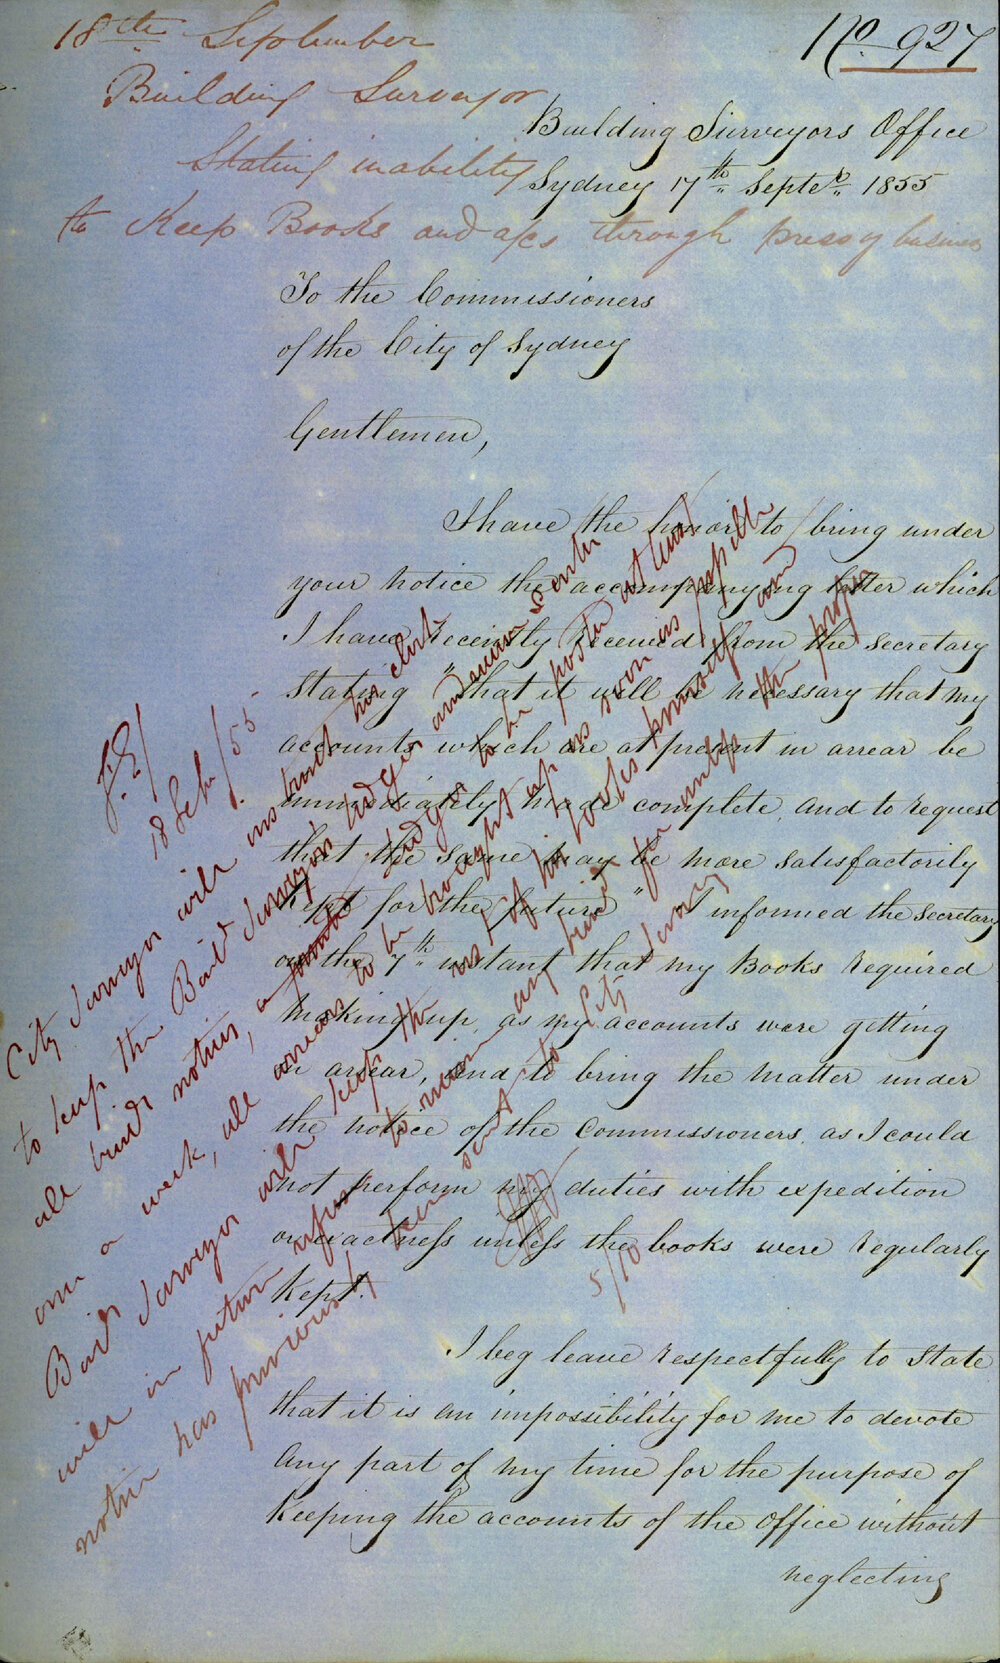 No. 927
18th September
Building Surveyor
Stating inability
to Keep Books and a/cs through press of business
Building Surveyors Office
Sydney 17th Septer. 1855
To the Commissioners
of the City of Sydney
Gentlemen,
I have the honor to bring under
your notice the accompanying letter which
I have recently received from the Secretary
stating "that it will be necessary that my
accounts which are at present in arrear be
immediately made complete, and to request
that the same may be more satisfactorily
kept for the future" I informed the Secretary
on the 7th instant that my Books required
making up, as my accounts were getting
in arrear, and to bring the matter under
the notice of the Commissioners, as I could
not perform my duties with expedition
or exactness unless the books were regularly
kept.
I beg leave respectfully to state
that it is an impossibility for me to devote
any part of my time for the purpose of
Keeping the accounts of the Office without
neglecting
City Surveyor will instruct his clerk
to keep the Build Surveyor's Ledger and
all build notices, Ledger to be posted at least
once a week, all arrears to be brought up as soon as possible
Build Surveyor will keep the rest of his books himself and
will in future refuse to receive any build fee unless the proper
notice has previously been sent to City Survey
5/10
18 Sept/55